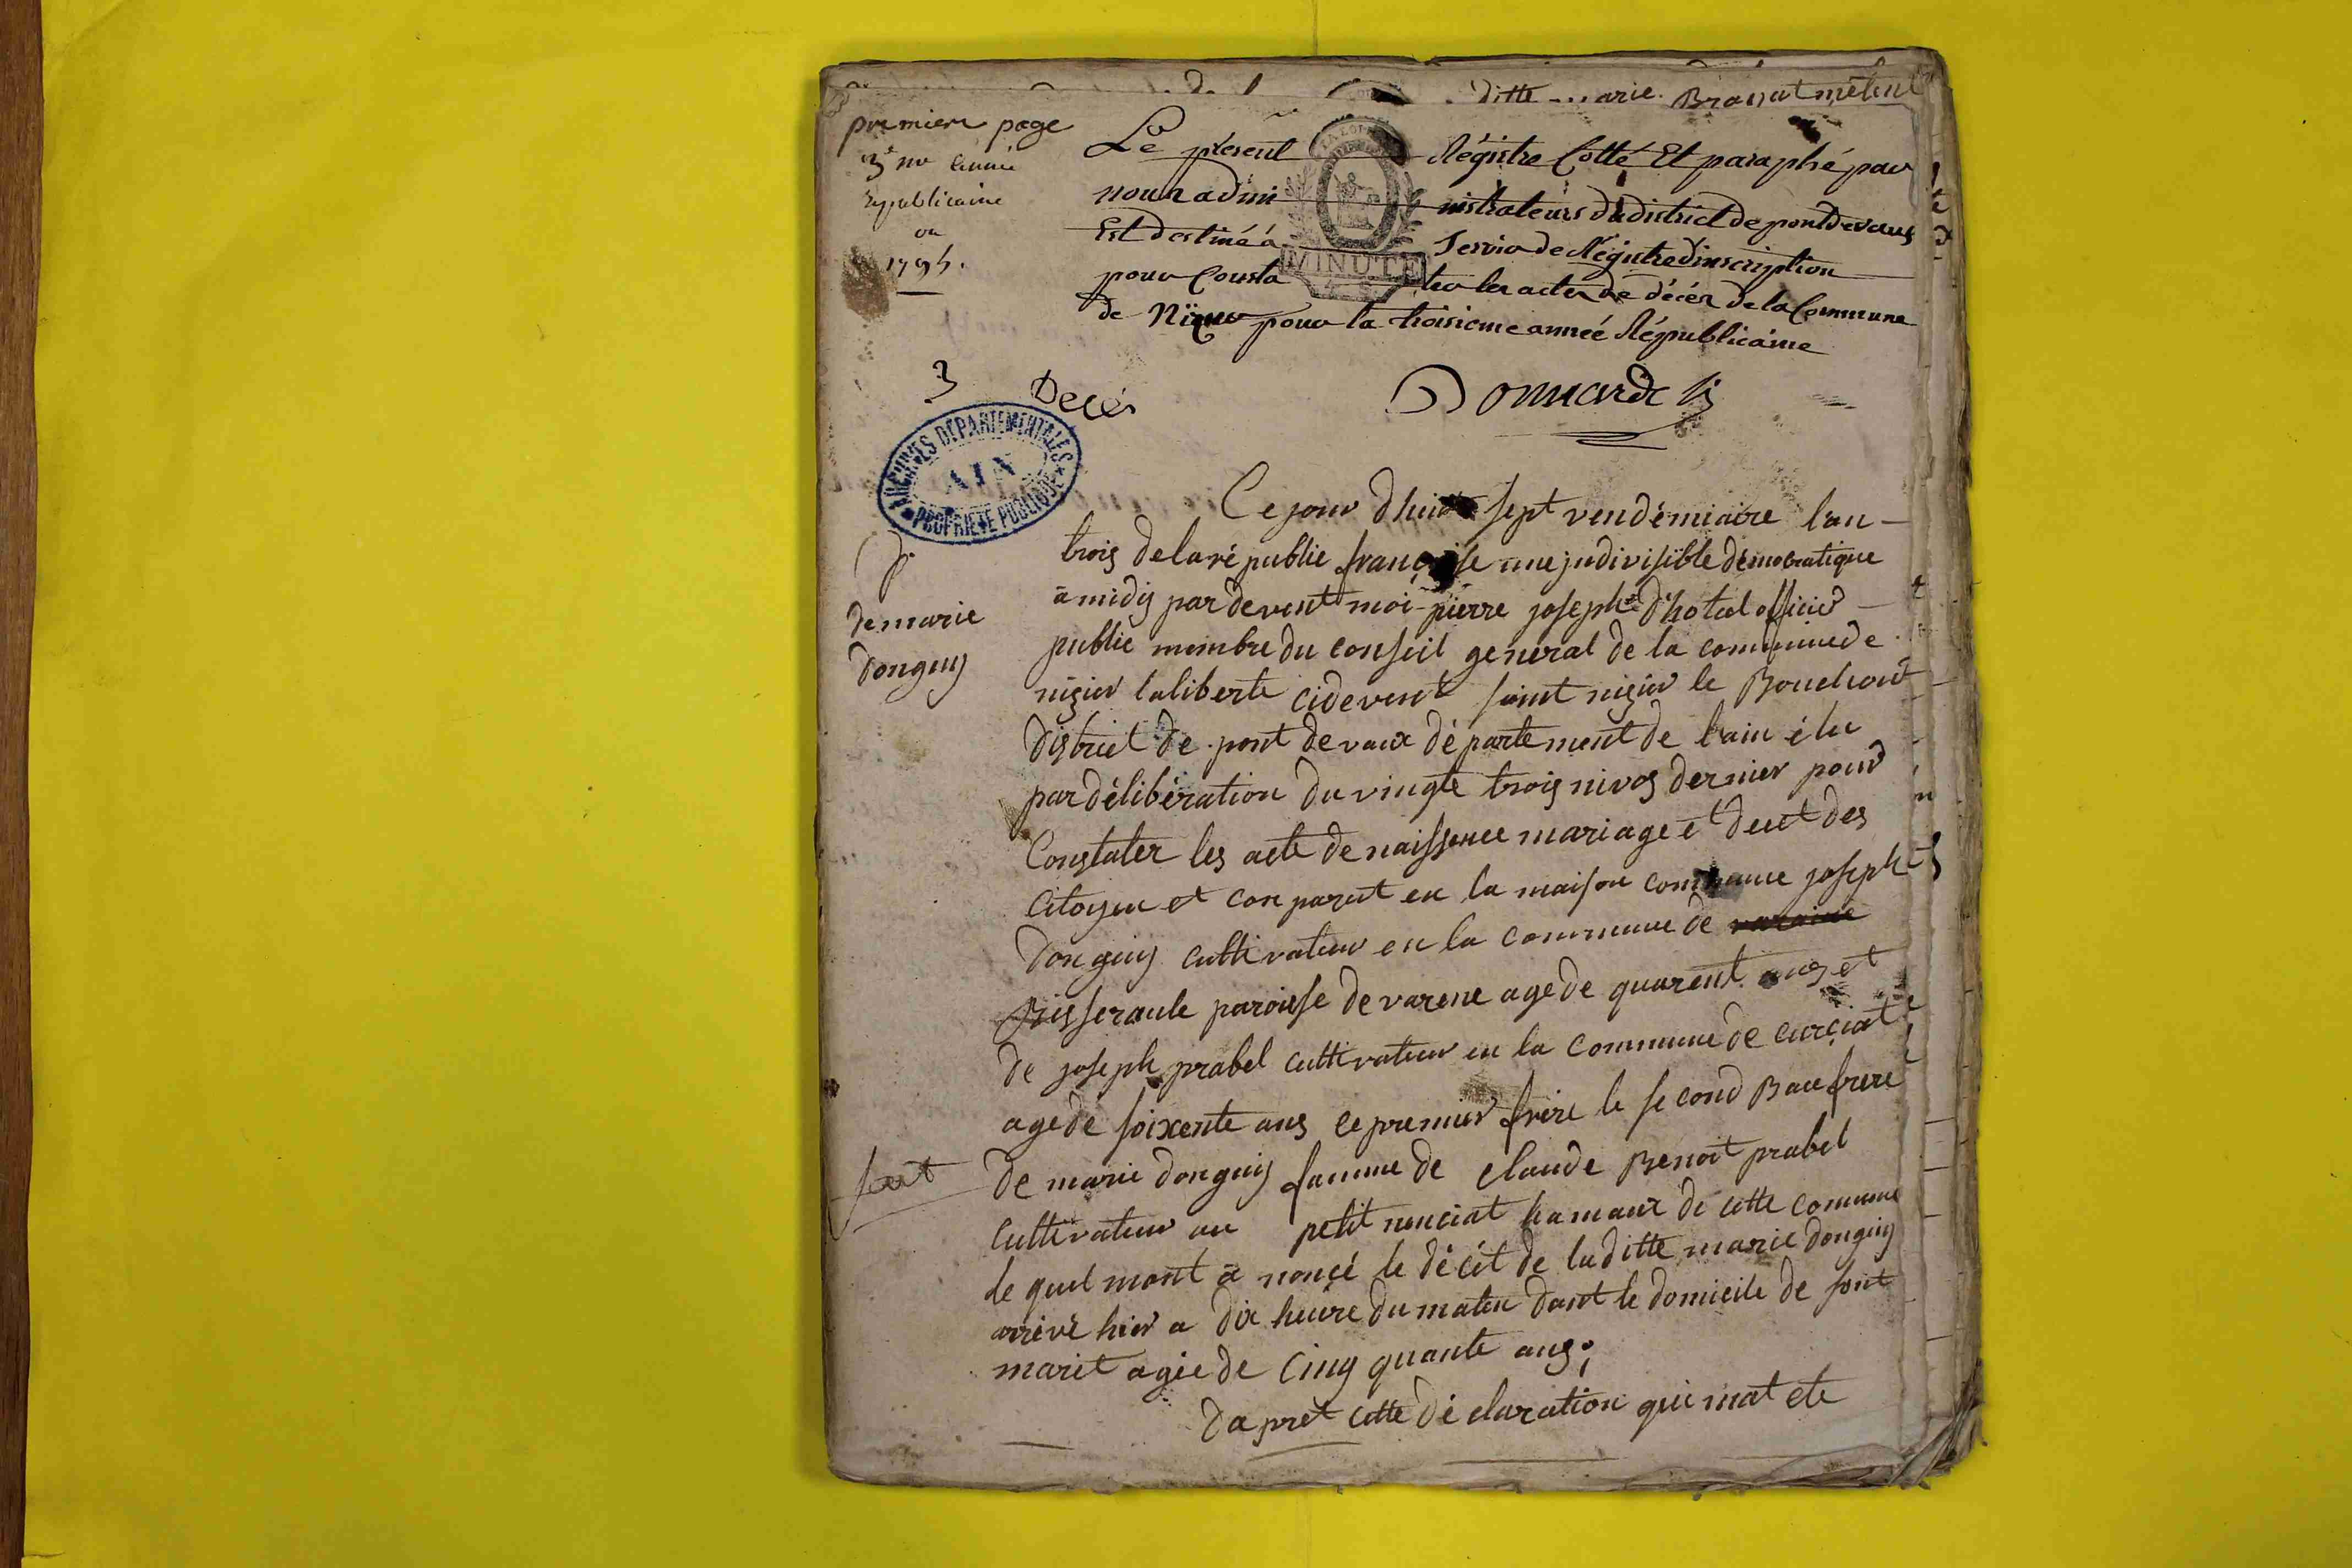 ditte marie
premiere page
3me année
republicaine
ou
1794.
Le présent Régistre Cotté Et paraphé par
nous admi nistrateurs du district de pontdevaux
Est destiné à Servir de Régistre d'inscription
pour Consta ter les actes de décès de la Commune
de Nizier pour la troisieme année Républicaine
LA LOI
MINUTE
3 Decés
ARCHIVES DÉPARTEMENTALES
AIN
PROPRIÉTÉ PUBLIQUE
Ce jour dhuit sept vendémiaire l'an
trois de la ré public françoise une jndivisible démocratique
a midy par devent moi pierre joseph d'hotal officier
public mombre du conseil general de la commune de
nizier laliberte cidevent saint nizier le Bouchout
district de pont de vaux département de l'ain élu
par délibération du vingte trois nivos dernier pour
Constater les acte de naissence mariage et decet des
citoyen et con parut en la maison commune joseph
donguy cultivateur en la commune de varaine
Bisseraule paroisse de varene age de quarent ans et
de joseph prabel cultivateur en la commune de curciat
age de soixente ans le premier frere le second Baufrere
de marie donguy famme de claude Benoit prabel
cultivateur au petit nonciat hamaux de cette comune
le quel mont a noncé le décét de la ditte marie donguy
arrivé hier a dix heure du maten dant le domicile de sont
marit agée de cinq quante ans;
da pret cette dé claration qui mat ete
de marie
donguy